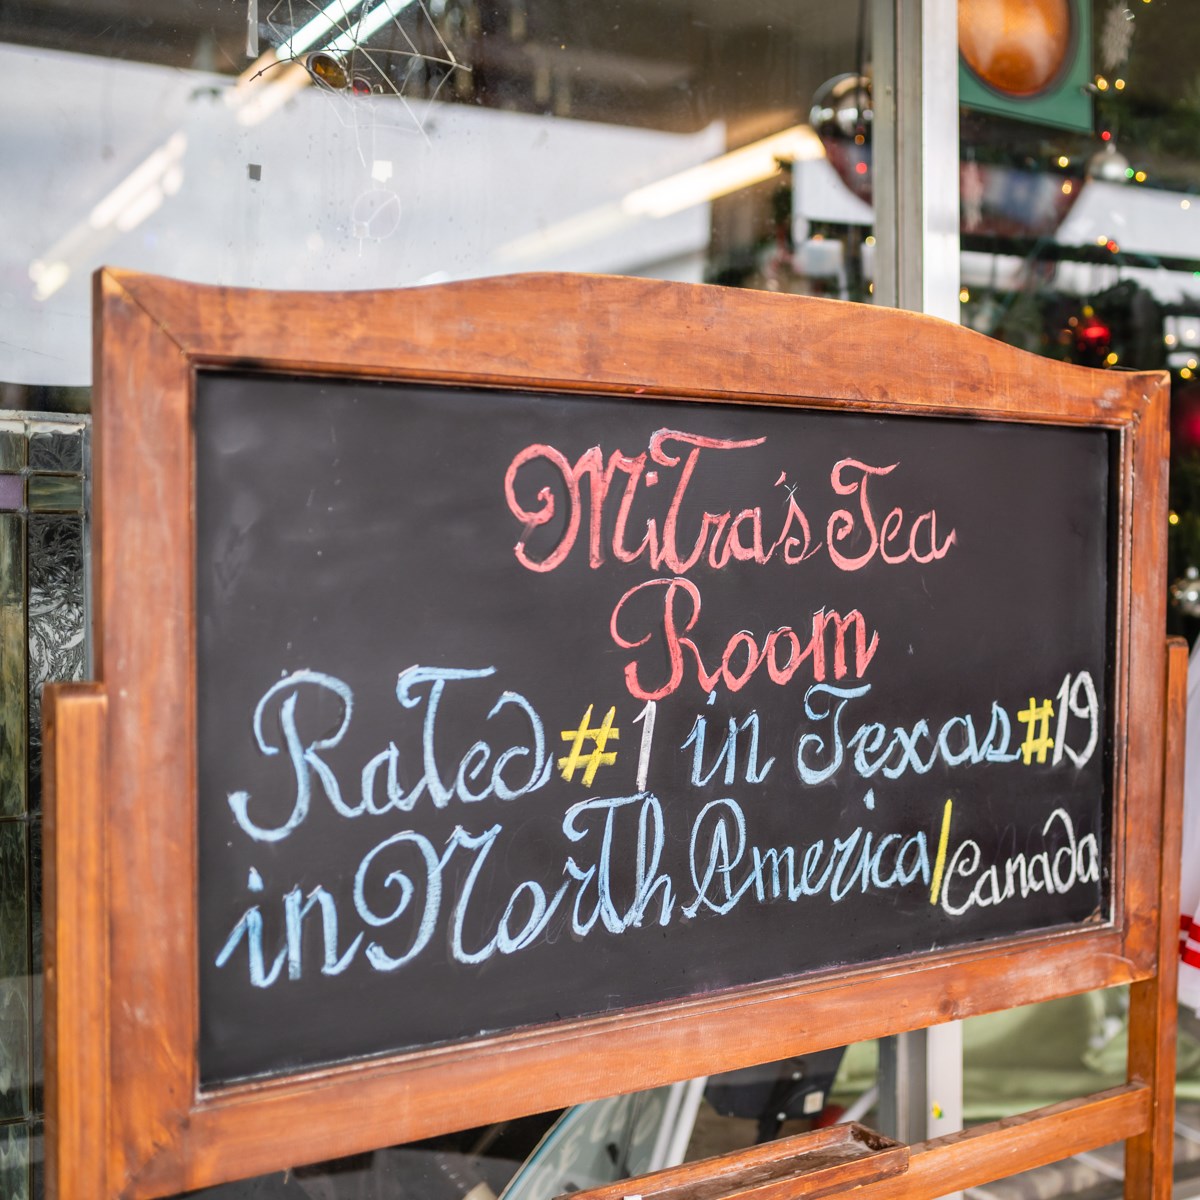 Mitra's Tea
Room
Rated #1 in Texas #19
in North America/Canada